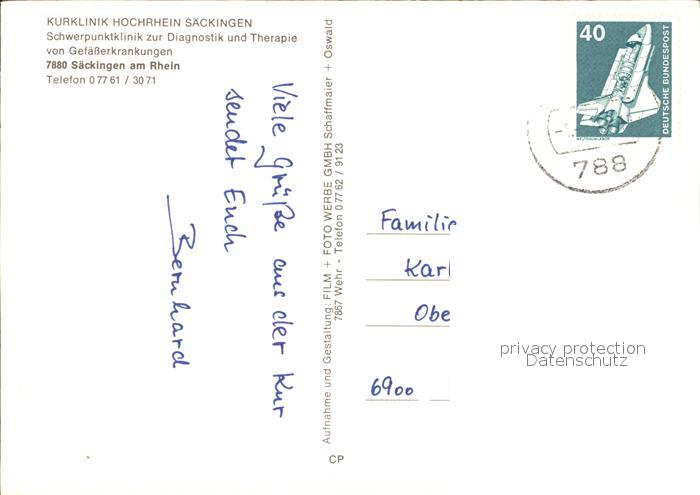 KURKLINIK HOCHRHEIN SÄCKINGEN
Schwerpunktklinik zur Diagnostik und Therapie
von Gefäßerkrankungen
7880 Säckingen am Rhein
Telefon 0 77 61 / 30 71
Viele Grüße aus der Kur
sendet Euch
Bernhard
Aufnahme und Gestaltung: FILM + FOTO WERBE GMBH Schaffmaier + Oswald
7867 Wehr - Telefon 0 77 62 / 91 23
CP
40
DEUTSCHE BUNDESPOST
WELTRAUMLABOR
788
Familie
Karl
Obe
6900
privacy protection
Datenschutz